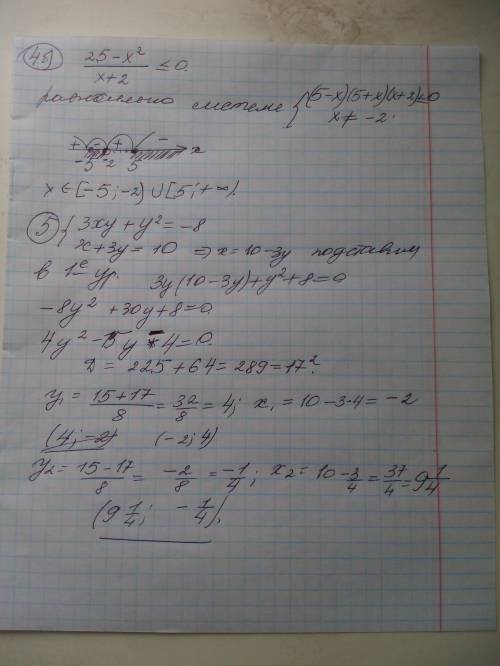 4б) (25-x²)/(x+2) ≤ 0.
равносильно системе { (5-x)(5+x)(x+2)≤0
x ≠ -2.
+ - + - x
-5 -2 5
x ∈ [-5; -2) ∪ [5; +∞).
5) { 3xy + y² = -8
x + 3y = 10 ⇒ x = 10-3y подставим
в 1е ур. 3y(10-3y)+y²+8=0
-8y² + 30y + 8 = 0
4y² - 15y - 4 = 0.
D = 225 + 64 = 289 = 17².
y₁ = (15+17)/8 = 32/8 = 4; x₁ = 10-3·4 = -2
(4; -2) (-2; 4)
y₂ = (15-17)/8 = -2/8 = -1/4; x₂ = 10-3/4 = 37/4 = 9 1/4
(9 1/4; -1/4).